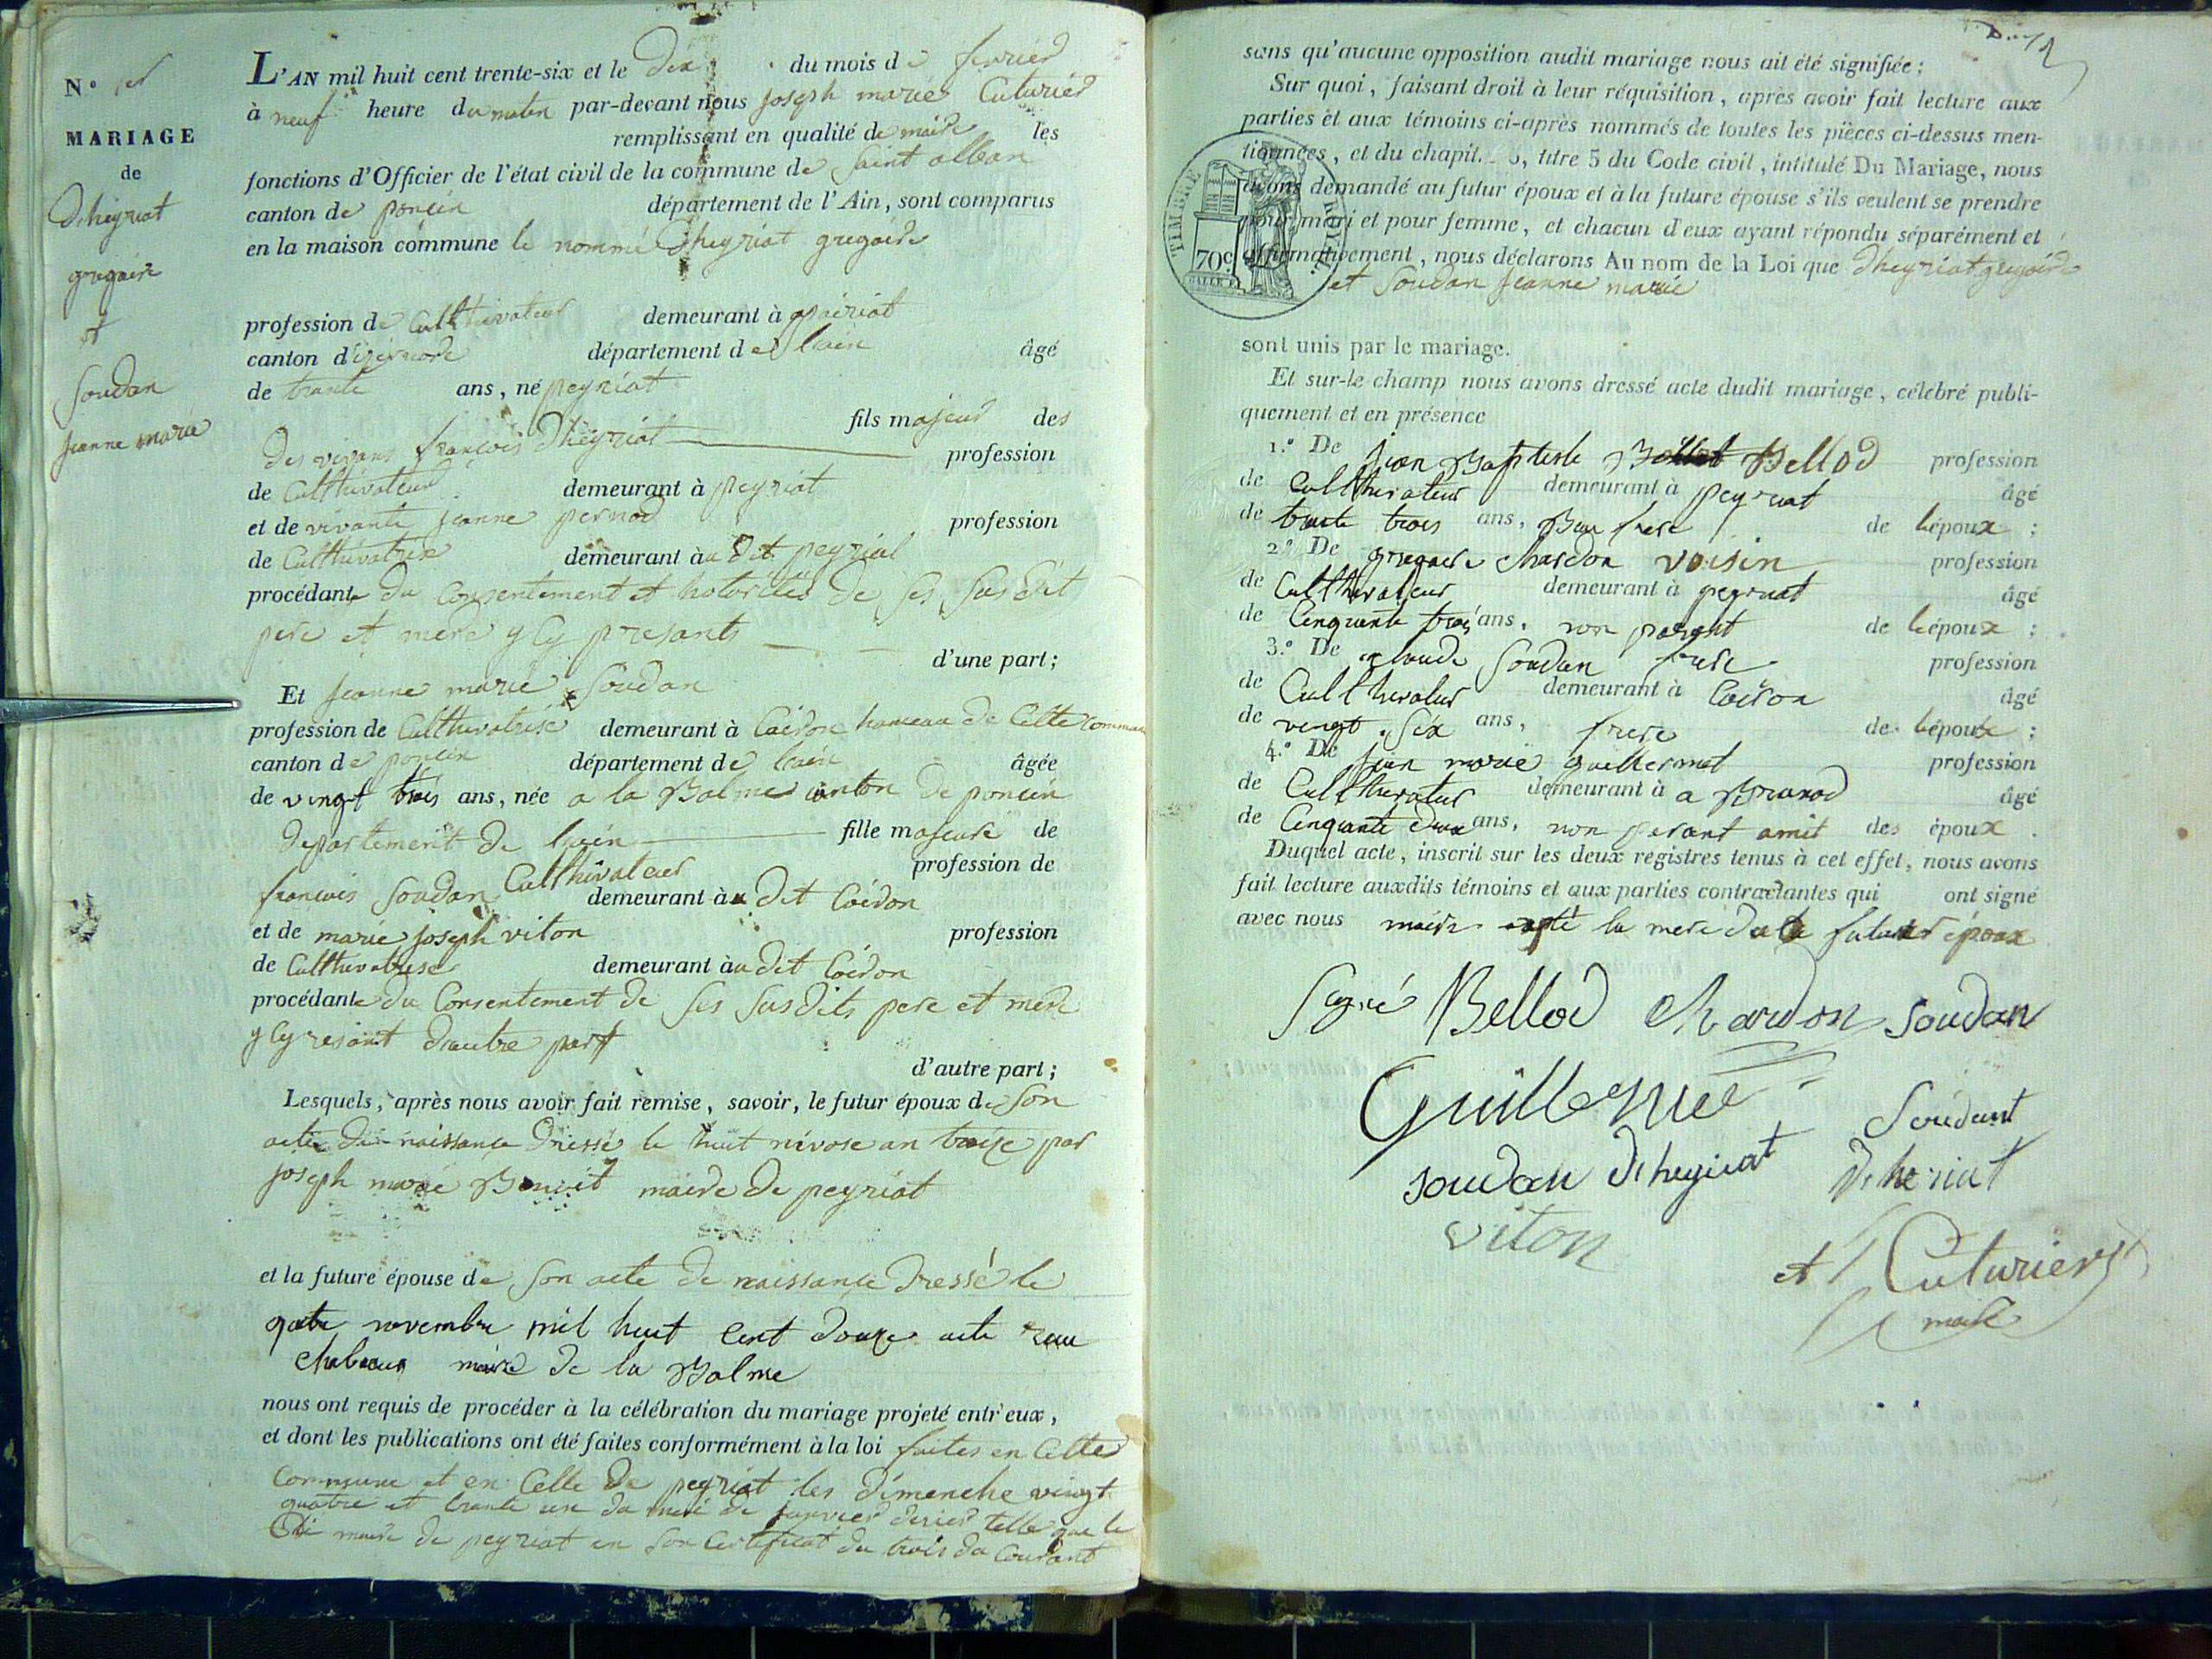 N.º 1er
MARIAGE
de
Dhéyriat
gregoire
et
Soudan
jeanne marie
L'AN mil huit cent trente-six et le dix du mois de fevrier
à neuf heure du matin par-devant nous joseph marie Cuturier
remplissant en qualité de maire les
fonctions d'Officier de l'état civil de la commune de Saint alban
canton de poncin département de l'Ain, sont comparus
en la maison commune le nommé Dheyriat gregoire
profession de Culthivateur demeurant à apériat
canton d'izernore département de lain âgé
de trante ans, né peyriat
fils majeur des
des vivans françois Dheyriat profession
de Culthivateur demeurant à peyriat
et de vivante jeanne pernod profession
de Culthivatrise demeurant àu dit peyriat
procédant du Consentement et hotorités de ses susdit
pere et mere y Cy presants
d'une part;
Et jeanne marie Soudan
profession de Culthivatrise demeurant à Coiron hameau de Cette commune
canton de poncin département de lain âgée
de vingt trois ans, née a la Balme canton de poncin
departement de lain fille majeure de
françois Soudan Culthivateur profession de
demeurant àu dit Coiron
et de marie joseph viton profession
de Culthivatrise demeurant àu dit Coiron
procédante du Consentement de ses susdits pere et mere
y Cy resant d'autre part
d'autre part;
Lesquels, après nous avoir fait remise, savoir, le futur époux de son
acte de naissance Dressé le huit nivose an traize par
joseph marie Benoit maire de peyriat
et la future épouse de son acte de naissance Dressé le
quatre novembre mil huit Cent douze acte recu
Chabaux maire de la Balme
nous ont requis de procéder à la célébration du mariage projeté entr'eux,
et dont les publications ont été faites conformément à la loi faites en Cette
Commune et en Celle de peyriat les dimenche vingt
quatre et trante un du moi de janvier denier telle que le
Dit maire de peyriat en son Certificat du trois du Courant
sans qu'aucune opposition audit mariage nous ait été signifiée;
Sur quoi, faisant droit à leur réquisition, après avoir fait lecture aux
parties et aux témoins ci-après nommés de toutes les pièces ci-dessus men-
tionnées, et du chapit. 6, titre 5 du Code civil, intitulé Du Mariage, nous
avons demandé au futur époux et à la future épouse s'ils veulent se prendre
pour mari et pour femme, et chacun d'eux ayant répondu séparément et
affirmativement, nous déclarons Au nom de la Loi que Dheyriat gregoire
et Soudan jeanne marie
TIMBRE ROYAL
70c
sont unis par le mariage.
Et sur-le-champ nous avons dressé acte dudit mariage, célébré publi-
quement et en présence
1.º De jean Baptiste Bellod profession
de Culthivateur demeurant à peyriat âgé
de trante trois ans, Beau frere de lépoux;
2.º De gregoire chardon voisin profession
de Culthivateur demeurant à peyriat âgé
de Cinquante trois ans, non parent de lépoux;
3.º De claude Soudan frere profession
de Culthivateur demeurant à Coiron âgé
de vingt six ans, frere de lépouse;
4.º De jean marie guillermet profession
de Culthivateur demeurant à a Branod âgé
de Cinquante deux ans, non parant amit des époux.
Duquel acte, inscrit sur les deux registres tenus à cet effet, nous avons
fait lecture auxdits témoins et aux parties contractantes qui ont signé
avec nous maire la mere du futur époux
Signé Bellod Chardon Soudan
Guillerme Soudant
soudan Dheyriat Dheriat
viton
et Cuturier
maire